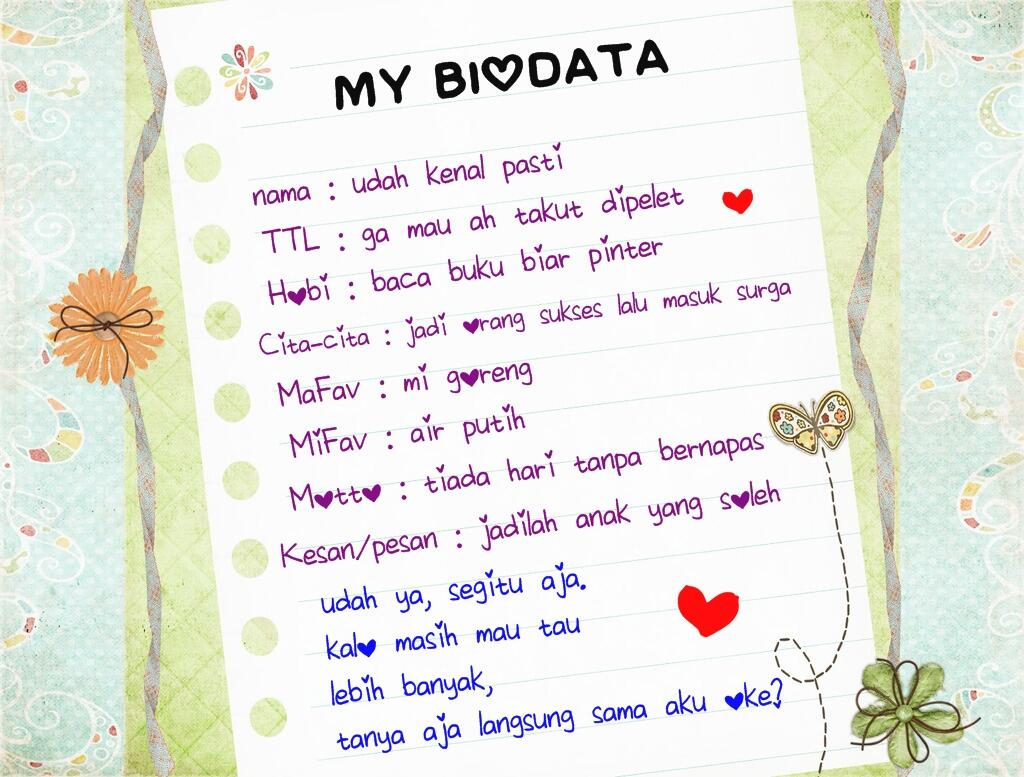 MY BIODATA
nama : udah kenal pasti
TTL : ga mau ah takut dipelet
Hobi : baca buku biar pinter
Cita-cita : jadi orang sukses lalu masuk surga
MaFav : mi goreng
MiFav : air putih
Motto : tiada hari tanpa bernapas
Kesan/pesan : jadilah anak yang soleh
udah ya, segitu aja.
kalo masih mau tau
lebih banyak,
tanya aja langsung sama aku oke?